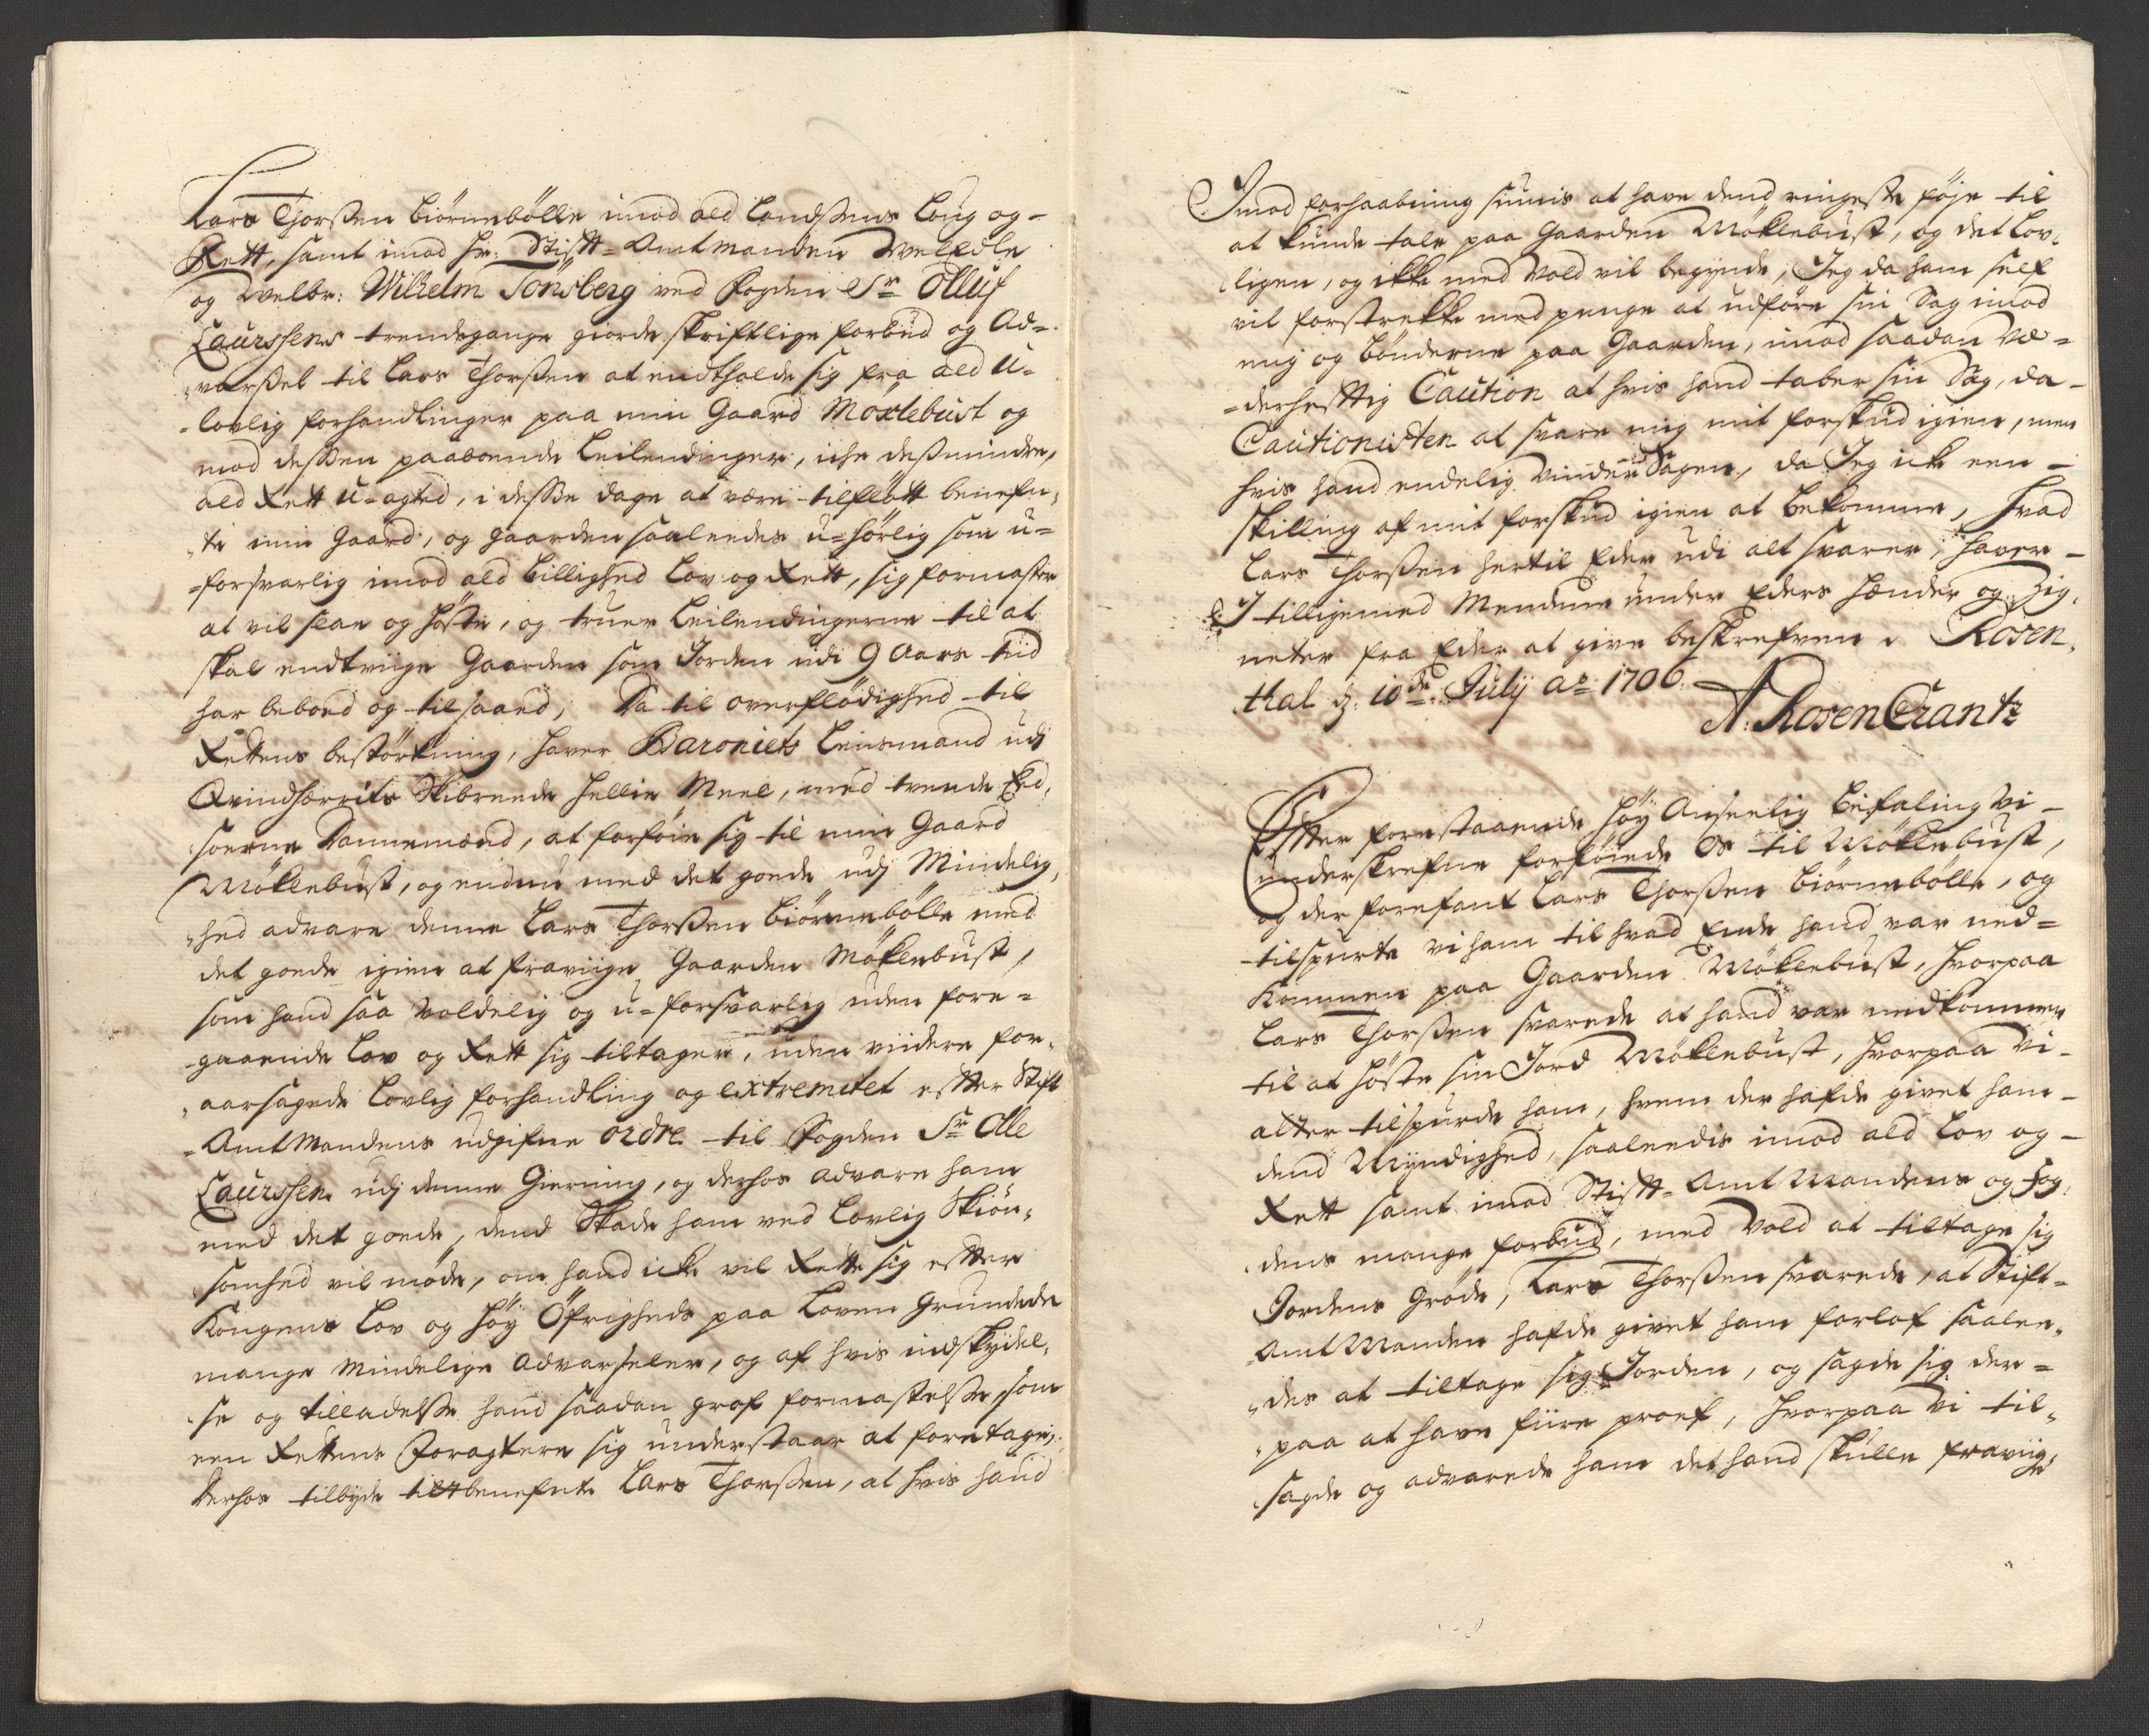 Lars Thorßen Biörnebölle imod ald Landßens Loug og-
Rett, samt imod Hr: Stifft-Amtmanden Weledle
og Welbr: Wilhelm Tönsberg ved Fogden Sr Olluf
Laurssens trendegange giorde skriftlige forbud og Ad-
varßel til Lars Thorßen at endtholde sig fra ald u-
lovlig forhandlinger paa min Gaard Moxlebust og
mod deßen paaboende Leilendinger, iche deßmindre,
ald Rett u-agted, i deße dage at være tilfløtt benefn-
te min Gaard, og gaarden saaleedes u-hörlig som u-
forsvarlig imod ald billighed Lov og Rett, sig formaster
at vil slae og höste, og truer Leilendingerne til at
skal endtviige Gaarden som Jorden udi 9 Aars tiid
har beboed og tilsaaed, Da til overflödighed til
Rettens bestörkning, haver Baroniets Leinsmand udj
Qvindherrits Skibreede Hellie Meel, med tvende Eed-
soerne Dannemænd, at forföie sig til min Gaard
Möklebust, og endnu med det goede udj Mindelig-
hed advare denne Lars Thorßen Biörnebölle med
det goede igien at fraviige Gaarden Möklebust,
som hand saa voldelig og u-forsvarlig uden fore-
gaaende Lov og Rett sig tiltager, uden viidere for-
aarsagede Lovlig forhandling og extremitet efter Stift
-Amtmandens udgifne ordre til Fogden Sr Olle
Laurssen udj denne Gierning, og derhos advare ham
med det goede, dend Skade ham ved Lovlig Skiön-
somhed vil möde, om hand icke vil Rette sig efter
Kongens Lov og höy Öfrigheds paa Loven Grundede
mange Mindelige Advarseler, og af hvis indskydel-
se og tilladelße hand saadan grof formastelße som
een Rettens Foragtere sig understaar at foretage;
derhos tilbyde benefnte Lars Thorßen, at hvis hand
Imod forhaabning siunis at have dend ringeste föje til
at kunde tale paa Gaarden Möklebust, og det Lov-
ligen, og ikke med Vold vil begynde, Jeg da ham self
vil forstrekke med penge at udföre sin Sag imod
mig og bönderne paa Gaarden, imod saadan Væ-
derheftig Caution at hvis hand taber sin Sag, da-
Cautionisten at svare mig mit forskud igien, men
hvis hand endelig vinder Sagen, da Jeg ick een-
skilling af mit forskud igien at bekomme, hvad
Lars Thorßen hertil Eder udi alt svarer, haver-
I tilligemed Mendene under Eders hænder og Zig-
neter fra Eder at give beskrefven. Rosen-
thal d: 10de July ao 1706.
A: RosenCrantz
Effter forestaaende Höy Anseelig befaling Vi-
underskrefne forföiede Os til Möklebust,
og der forefant Lars Thorßen Biörnebölle, og
tilspurte vi ham til hvad Ende hand var ned-
kommen paa Gaarden Möklebust, hvorpaa
Lars Thorßen svarede at hand var nedkommen
til at höste sin Jord Möklebust, hvorpaa Vi-
atter tilspurde ham, hvem der hafde givet ham-
dend Myndighed, saaleedis imod ald Lov og-
Rett samt imod Stifft-Amtmandens og Fog-
dens mange forbud, med Vold at tiltage sig
Jordens Gröde, Lars Thorßen svarede, at Stift-
Amtmanden hafde givet ham forlof saalee-
des at tiltage sig Jorden, og sagde sig der-
paa at have fiire proef, hvorpaa Vi til-
sagde og advarede ham det hand skulle fraviige